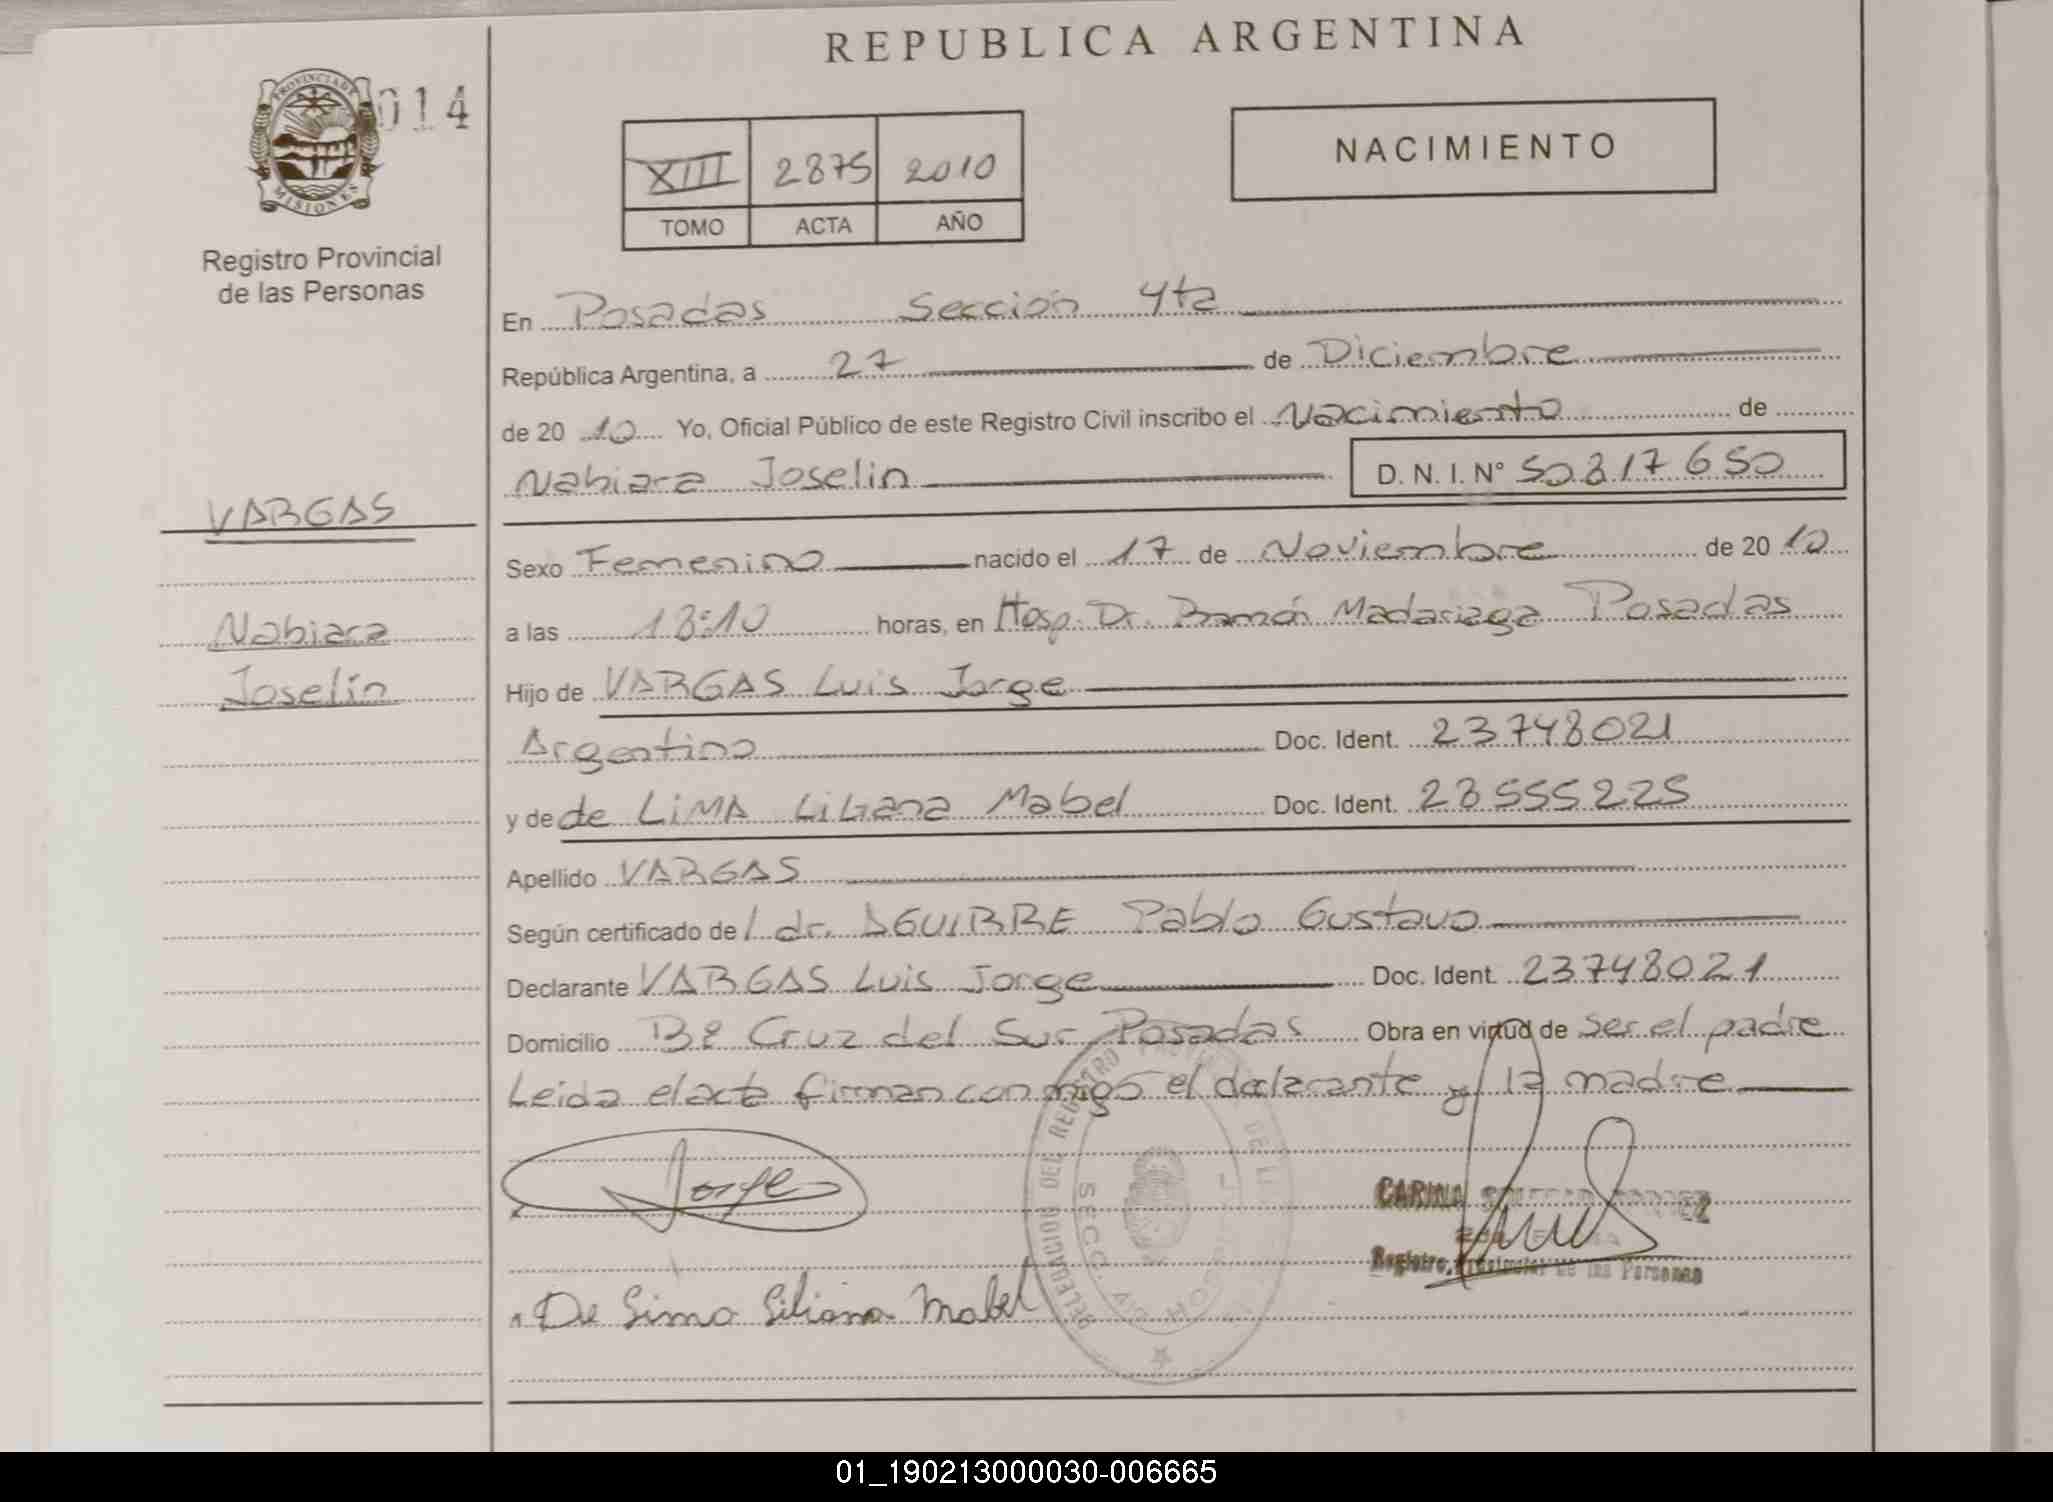 REPUBLICA ARGENTINA
014
PROVINCIA DE
MISIONES
Registro Provincial
de las Personas
XIII 2875 2010
TOMO ACTA AÑO
NACIMIENTO
En Posadas Sección 4ta
República Argentina, a 27 de Diciembre
de 20 10 Yo, Oficial Público de este Registro Civil inscribo el Nacimiento de
Nahiara Joselin D. N. I. N° 50.817.650
VARGAS
Nahiara
Joselin
Sexo Femenino nacido el 17 de Noviembre de 20 10
a las 18:10 horas, en Hosp. Dr. Ramón Madariaga Posadas
Hijo de VARGAS Luis Jorge
Argentino Doc. Ident. 23748021
y de de LiMA Liliana Mabel Doc. Ident. 23555225
Apellido VARGAS
Según certificado de l dr. AGUIRRE Pablo Gustavo
Declarante VARGAS Luis Jorge Doc. Ident. 23748021
Domicilio Bº Cruz del Sur Posadas Obra en virtud de ser el padre
Leida el acta firman conmigo el declarante y la madre
Jorge
DELEGACION DEL REGISTRO
SECC.
CARINA
Registro Provincial de las Personas
De Lima Liliana Mabel
01_190213000030-006665